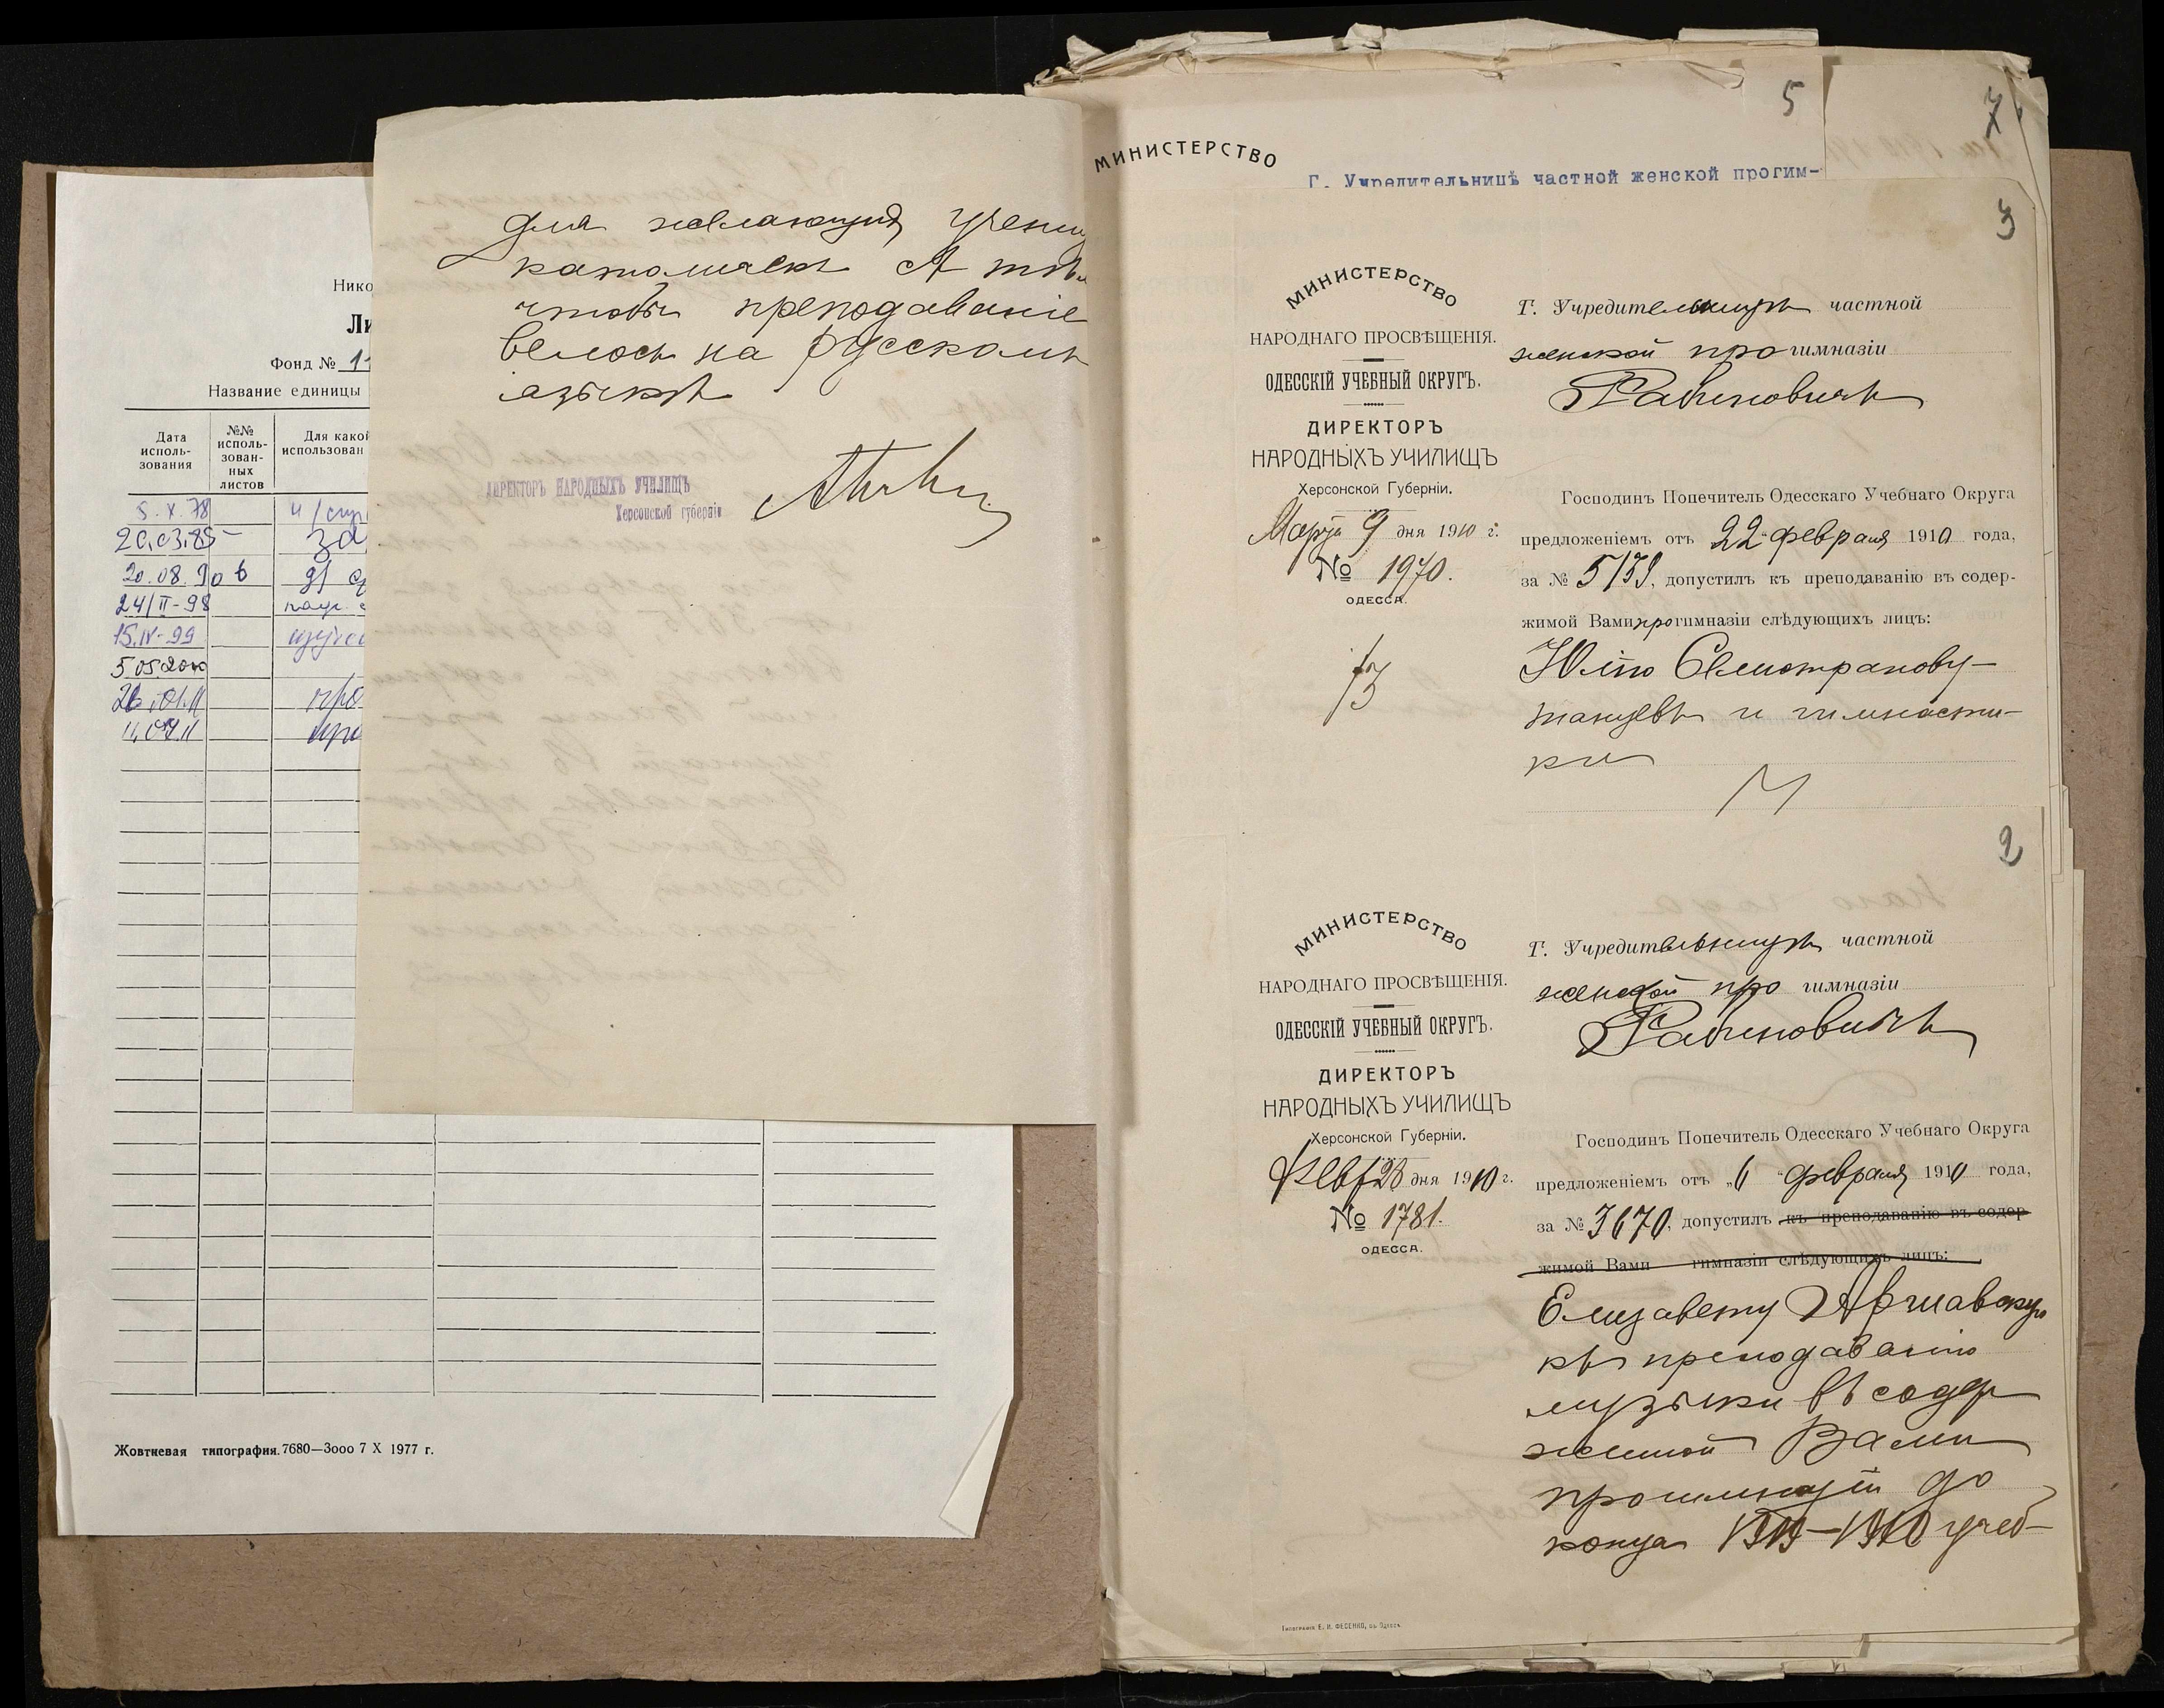 Нико
Ли
Фонд № 11
Название единицы
Дата использования
№№ использованных листов
Для какой
использован
5.X.78
20.03.85 –
20.08.90 6
24/II-98
15.IV-99
5 05 2000
26.01.11
11.04.11
Жовтневая типография. 7680—3000 7 X 1977 г.
для желающихъ учениц
католичекъ съ тѣм
чтобы преподаваніе
велось на русскомъ
языкѣ
ДИРЕКТОРЪ НАРОДНЫХЪ УЧИЛИЩЪ
Херсонской губерніи
5
7
МИНИСТЕРСТВО
Г. Учредительницѣ частной женской прогим-
3
МИНИСТЕРСТВО
НАРОДНАГО ПРОСВѢЩЕНІЯ.
ОДЕССКІЙ УЧЕБНЫЙ ОКРУГЪ.
ДИРЕКТОРЪ
НАРОДНЫХЪ УЧИЛИЩЪ
Херсонской Губерніи.
Марта 9 дня 1910 г.
№ 1970.
ОДЕССА.
13
Г. Учредительницѣ частной
женской прогимназіи
Рабиновичъ
Господинъ Попечитель Одесскаго Учебнаго Округа
предложеніемъ отъ 22 февраля 1910 года,
за № 5159, допустилъ къ преподаванію въ содер-
жимой Вами прогимназіи слѣдующихъ лицъ:
Юлію Селистранову –
танцевъ и гимнасти-
ки
2
МИНИСТЕРСТВО
НАРОДНАГО ПРОСВѢЩЕНІЯ.
ОДЕССКІЙ УЧЕБНЫЙ ОКРУГЪ.
ДИРЕКТОРЪ
НАРОДНЫХЪ УЧИЛИЩЪ
Херсонской Губерніи.
Февр 28 дня 1910 г.
№ 1781.
ОДЕССА.
Г. Учредительницѣ частной
женской про гимназіи
Рабиновичъ
Господинъ Попечитель Одесскаго Учебнаго Округа
предложеніемъ отъ „6 “ февраля 1910 года,
за № 3670, допустилъ къ преподаванію въ содер-
жимой Вами гимназіи слѣдующихъ лицъ:
Елизавету
къ преподаванію
музыки въ содер
жимой Вами
прогимназіи до
конца 1909–1910 учеб–
Типографія Е. И. ФЕСЕНКО, въ Одессѣ